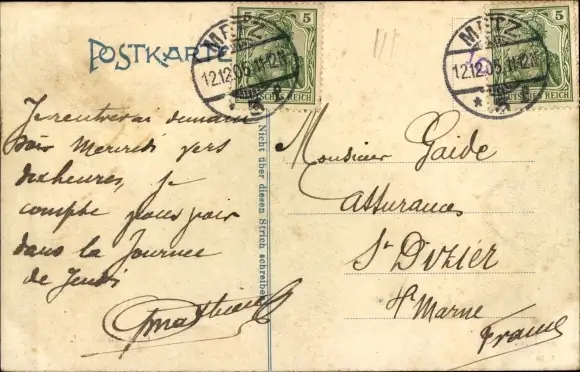 POSTKARTE
METZ
12.12.05. 11-12N
5
DEUTSCHES REICH
METZ
12.12.05. 11-12N
5
DEUTSCHES REICH
Je rentrerai demain
soir Mercredi vers
dix heures, je
compte vous voir
dans la Journée
de Jeudi
Nicht über diesen Strich schreiben
Monsieur Gaide
Assurances
St Dizier
Hte Marne
France